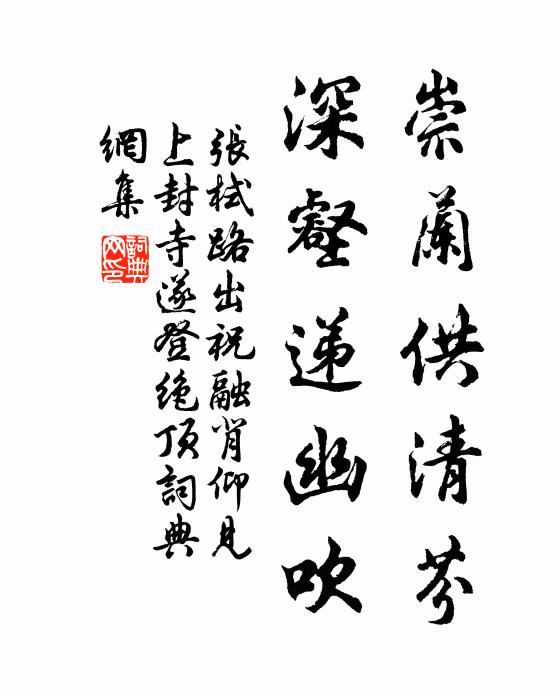 崇蘭供清芬
深壑遞幽吹
張栻路出祝融背仰見
上封寺遂登绝頂詞典
網集
詞典
网印